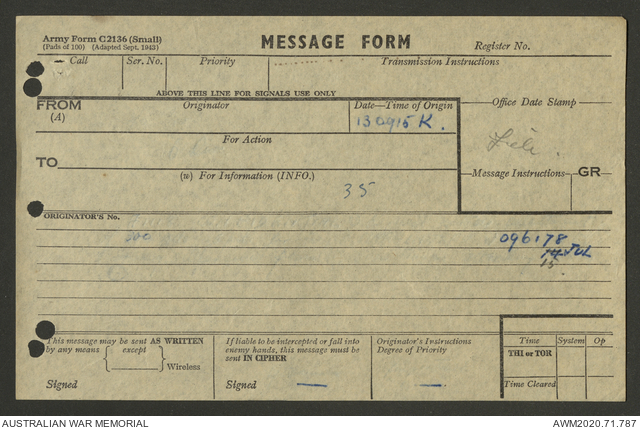 Army Form C2136 (Small)
(Pads of 100) (Adapted Sept. 1943)
MESSAGE FORM
Register No.
Call
Ser. No.
Priority
Transmission Instructions
ABOVE THIS LINE FOR SIGNALS USE ONLY
FROM
(A)
Originator
Date—Time of Origin
130915 K.
Office Date Stamp
For Action
TO
(w) For Information (INFO.)
35
Message Instructions
GR
ORIGINATOR'S No.
096178
15
This message may be sent AS WRITTEN
by any means
except
Wireless
Signed
If liable to be intercepted or fall into
enemy hands, this message must be
sent IN CIPHER
Signed —
Originator's Instructions
Degree of Priority
—
Time
System
Op
THI or TOR
Time Cleared
AUSTRALIAN WAR MEMORIAL
AWM2020.71.787